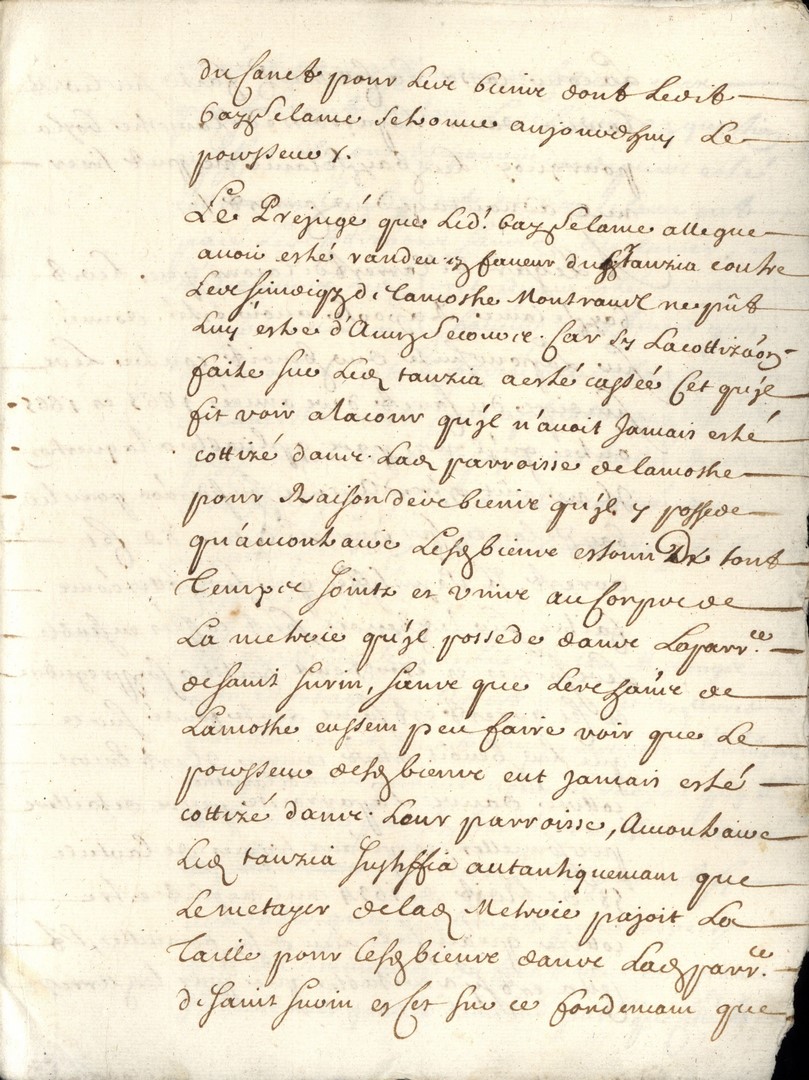 du Canet pour les biens dont ledit
Bazselame se trouve aujourdhuy le
possesseur.
Le Prejugé que led. Bazselame allegue
avoir esté randeu en faveur du Tauzia contre
les sindiqz de lamothe Montravel ne put
luy estre d'Aucun secours. Car sy la cottizaõn
faite sur led tauzia a esté cassée C'et qu'jl
fit voir a la cour qu'jl n'avoit jamais esté
cottizé dans lad parroisse de lamothe
pour Raison des biens qu'jl y possede
qu'au contraire lesd biens estoint De tout
Temps Jointz et unis au Corps de
La metrie qu'jl possede dans La parr.ce
de saint surin, sans que les habns de
Lamothe eussent peu faire voir que le
possesseur desd biens eut jamais esté
cottizé dans Leur parroisse, Au contraire
Led tauzia Justiffia autantiquemant que
Le metayer de lad Metroie pajoit La
Taille pour lesd biens dans Lad parr.ce
de saint surin et C'et sur ce fondemant que